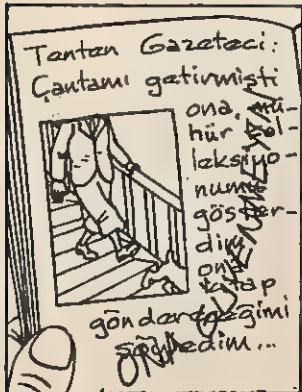 Tenten Gazeteci:
Çantamı getirmisti
ona, mü-
hür kol-
leksiyo-
numu
göster-
dim
ona
kitap
göndereceğimi
söyledim...